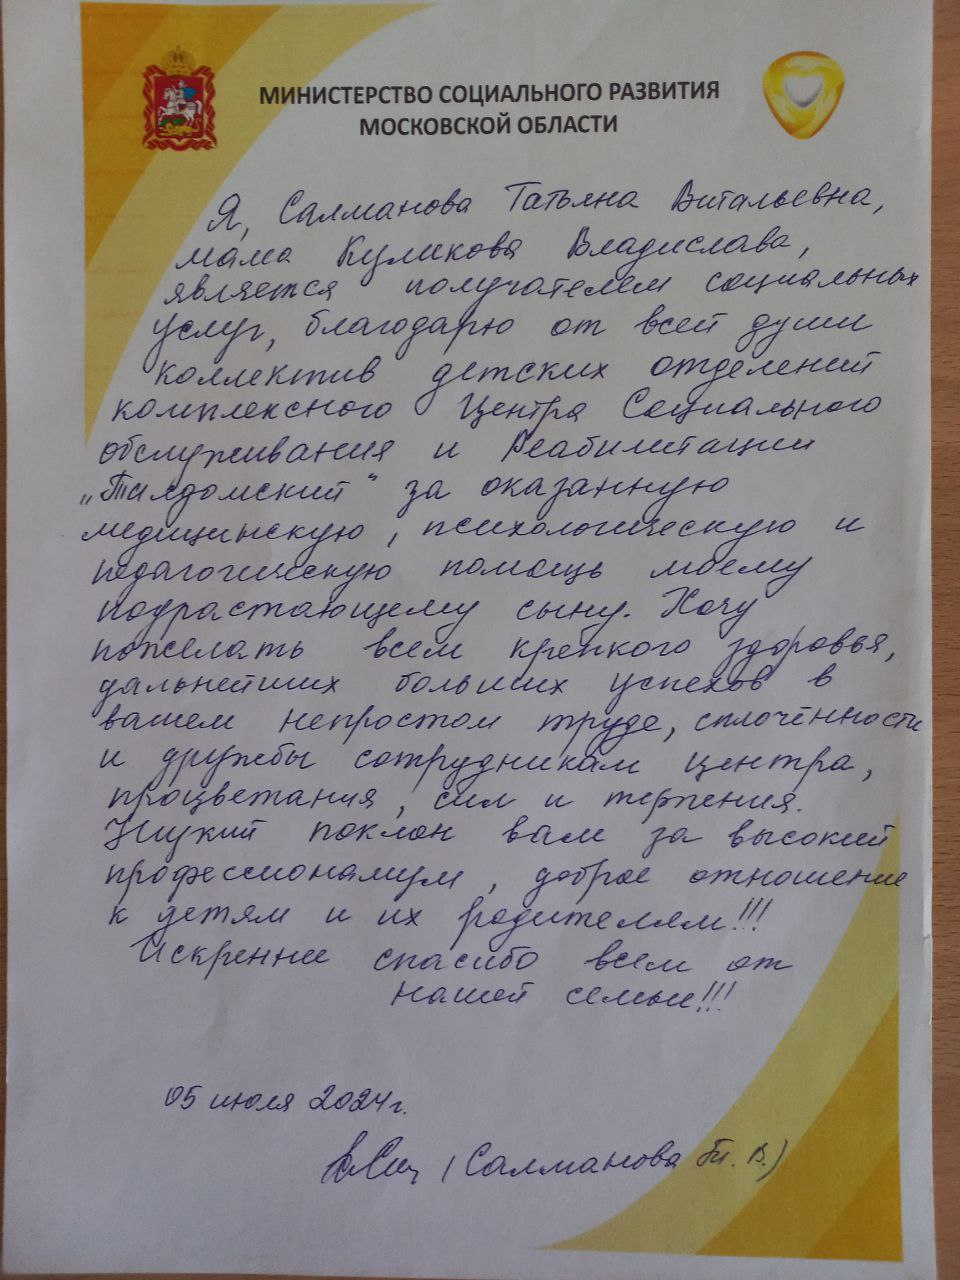 МИНИСТЕРСТВО СОЦИАЛЬНОГО РАЗВИТИЯ
МОСКОВСКОЙ ОБЛАСТИ
Я, Салманова Татьяна Витальевна,
мама Куликова Владислава,
является получателем социальных
услуг, благодарю от всей души
коллектив детских отделений
комплексного Центра Социального
обслуживания и Реабилитации
„Талдомский“ за оказанную
медицинскую, психологическую и
педагогическую помощь моему
подрастающему сыну. Хочу
пожелать всем крепкого здоровья,
дальнейших больших успехов в
вашем непростом труде, сплочённости
и дружбы сотрудникам центра,
процветания, сил и терпения.
Низкий поклон вам за высокий
профессионализм, доброе отношение
к детям и их родителям!!!
Искреннее спасибо всем от
нашей семьи!!!
05 июля 2024г.
(Салманова Т. В.)